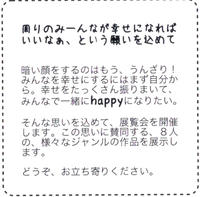 周りのみーんなが幸せになれば
いいなぁ、という願いを込めて
暗い顔をするのはもう、うんざり！
みんなを幸せにするにはまず自分か
ら。幸せをたくさん振りまいて、
みんなで一緒にhappyになりたい。
そんな思いを込めて、展覧会を開催
します。この思いに賛同する、８人
の、様々なジャンルの作品を展示し
ます。
どうぞ、お立ち寄りください。